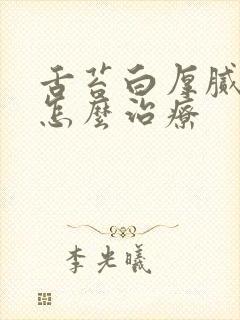 舌苔白厚腻
怎麼治療
李光曦